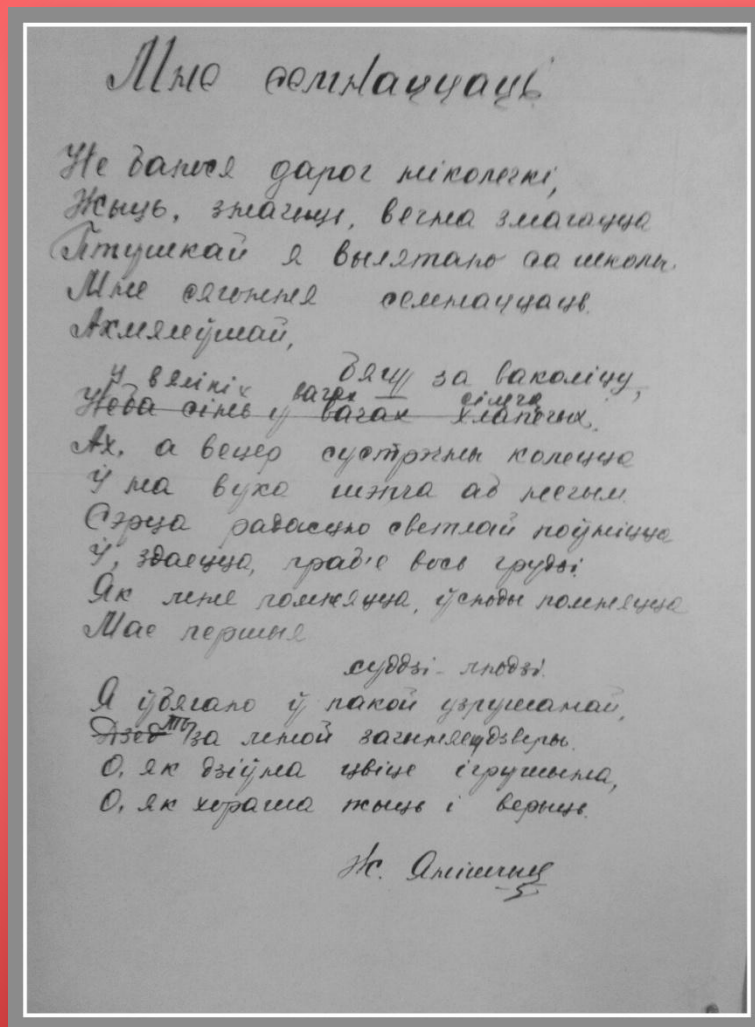 Мне семнаццаць
Не баюся дарог ніколечкі,
Жыць, значыць, вечна змагацца
Птушкай я вылятаю са школы.
Мне сягоння семнаццаць.
Ахмялеўшай,
бягу за ваколіцу,
У вялікіх вачах сінега
Неба сінь ў вачах хлапечых.
Ах, а вецер сустрэчны колецца
Ў на вуха шэпча аб нечым.
Сэрца радасцю светлай поўніцца
Ў, здаецца, праб'е вось грудзі.
Як мне помняцца, ўсюды помняцца
Мае першыя
суддзі - людзі.
Я ўбягаю ў пакой узрушанай,
Дзед за мной зачыняе дзверы.
О, як дзіўна цвіце ігрушына,
О, як хораша жыць і верыць.
Ж. Янішчыц